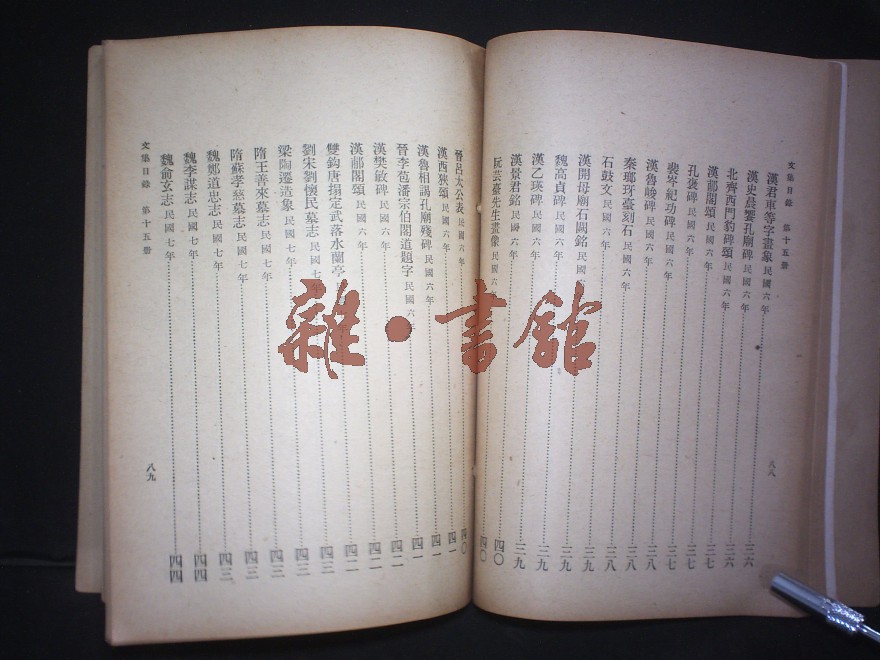 文集目錄 第十五册
漢君車等字畫象 民國六年 三六
漢史晨饗孔廟碑 民國六年 三六
北齊西門豹碑頌 民國六年 三七
漢郙閣頌 民國六年 三七
孔褒碑 民國六年 三七
裴岑紀功碑 民國六年 三八
漢魯峻碑 民國六年 三八
秦瑯玡臺刻石 民國六年 三八
石鼓文 民國六年 三八
漢開母廟石闕銘 民國 三九
魏高貞碑 民國六年 三九
漢乙瑛碑 民國六年 三九
漢景君銘 民國六年 四〇
阮芸臺先生畫像 民國六年 四〇
八八
晉呂太公表 民國六年 四〇
漢西狹頌 民國六年 四一
漢魯相謁孔廟殘碑 民國六年 四一
晉李苞潘宗伯閣道題字 民國六年 四二
漢樊敏碑 民國六年 四二
漢郙閣頌 民國六年 四二
雙鈎唐搨定武落水蘭亭 四三
劉宋劉懷民墓志 民國七年 四三
梁陶遷造象 民國七年 四三
隋王善來墓志 民國七年 四三
隋蘇孝慈墓志 民國七年 四三
魏鄭道忠志 民國七年 四四
魏李謀志 民國七年 四四
魏俞玄志 民國七年
文集目錄 第十五册
八九
雜·書館